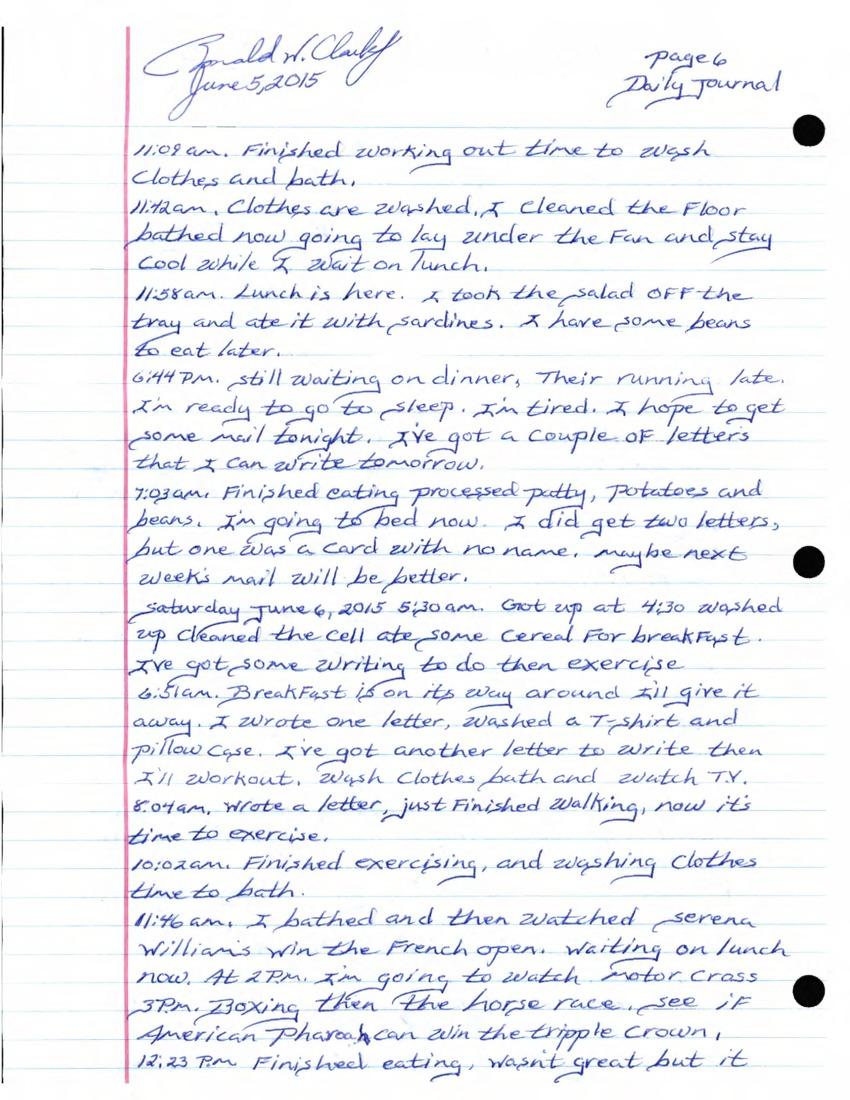 Ronald W. Clark Jr
page 6
June 5, 2015
Daily Journal
11:09 am. Finished working out time to wash
Clothes and bath.
11:42 am. Clothes are washed. I cleaned the Floor
bathed now going to lay under the Fan and stay
Cool while I wait on lunch.
11:58 am. Lunch is here. I took the salad OFF the
tray and ate it with sardines. I have some beans
to eat later.
6:44 PM. still waiting on dinner, Their running late.
I'm ready to go to sleep. I'm tired. I hope to get
some mail tonight. I've got a couple of letters
that I can write tomorrow.
7:03 am. Finished eating processed patty, potatoes and
beans. I'm going to bed now. I did get two letters,
but one was a card with no name. maybe next
week's mail will be better.
Saturday June 6, 2015 5:30 am. Got up at 4:30 washed
up Cleaned the cell ate some Cereal For breakFast.
I've got some writing to do then exercise
6:51 am. BreakFast is on its way around I'll give it
away. I wrote one letter, washed a T-shirt and
pillow case. I've got another letter to write then
I'll workout. Wash Clothes bath and watch TV.
8:04 am. Wrote a letter, just Finished walking, now it's
time to exercise.
10:02 am. Finished exercising, and washing Clothes
time to bath.
11:46 am. I bathed and then watched serena
Williams win the French open. Waiting on lunch
now. At 2 P.m. I'm going to watch motor Cross
3 P.m. Boxing then the horse race. see iF
American Pharoah can win the tripple Crown.
12:23 P.m Finished eating, wasn't great but it